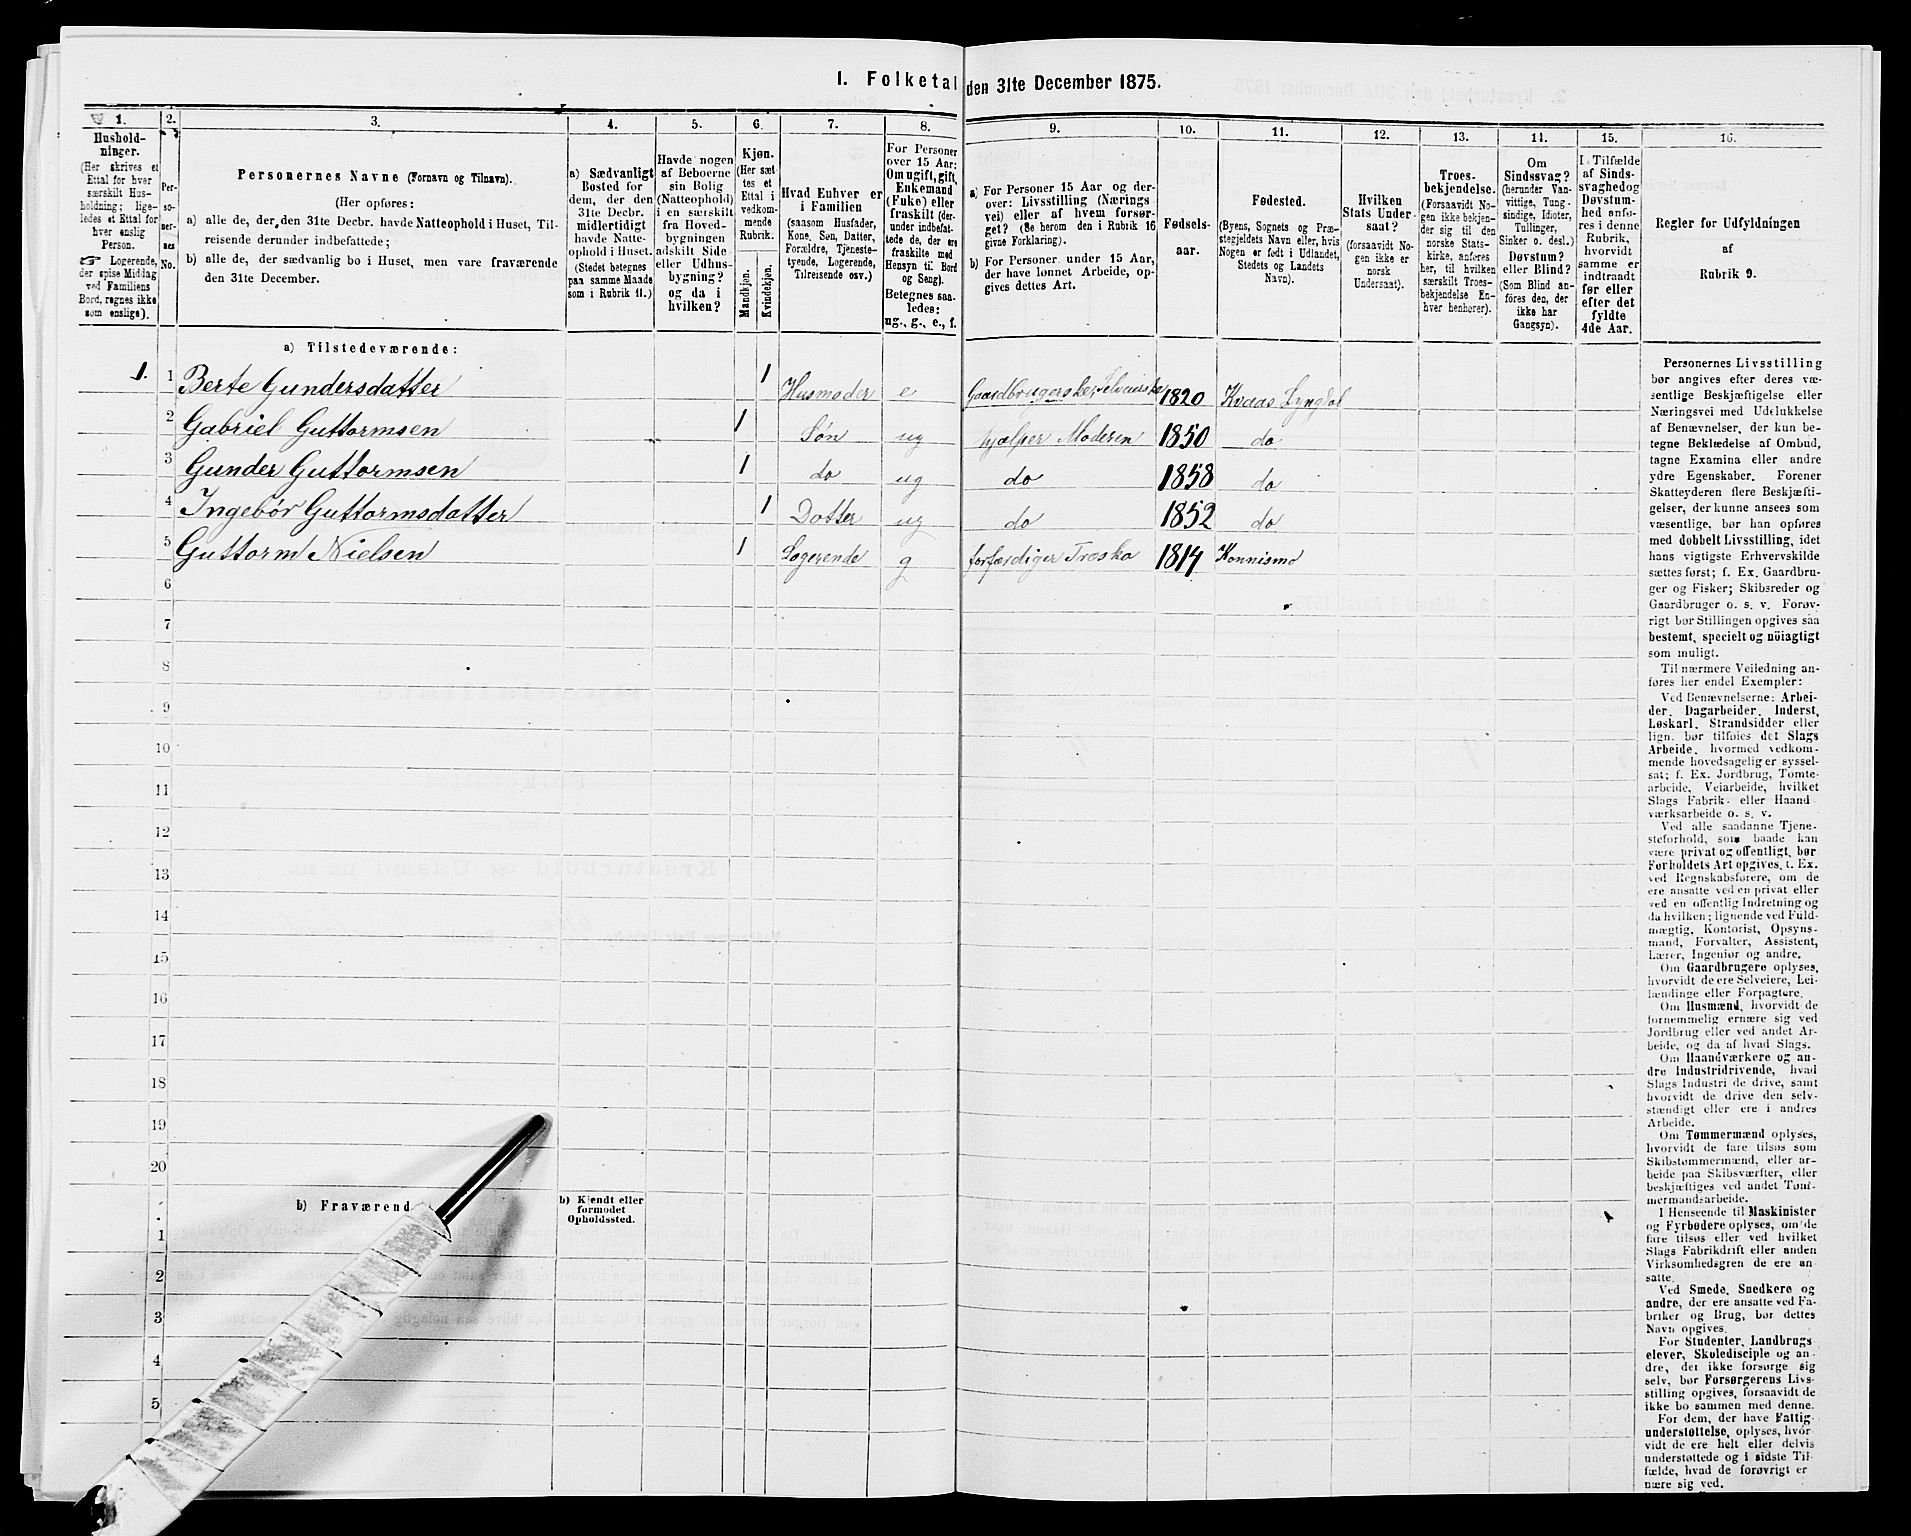 I. Folketal den 31te December 1875.
1.
Hushold-
ninger.
(Her skrives et
Ettal for hver
særskilt Hus-
holdning; lige-
ledes et Ettal for
hver enslig
Person.
Logerende,
der spise Middag
ved Familiens
Bord, regnes ikke
som enslige).
2.
Per-
so-
ner-
nes
No.
3.
Personernes Navne (Fornavn og Tilnavn).
(Her opføres:
a) alle de, der den 31te Decbr. havde Natteophold i Huset, Til-
reisende derunder indbefattede;
b) alle de, der sædvanlig bo i Huset, men vare fraværende
den 31te December.
4.
a) Sædvanligt
Bosted for
dem, der den
31te Decbr.
midlertidigt
havde Natte-
ophold i Huset.
(Stedet betegnes
paa samme Maade
som i Rubrik 11.)
5.
Havde nogen
af Beboerne
sin Bolig
(Natteophold)
i en særskilt
fra Hoved-
bygningen
adskilt Side
eller Udhus-
bygning?
og da i
hvilken?
6.
Kjøn.
(Her sæt-
tes et
Ettal i
vedkom-
mende
Rubrik.
Mandkjøn.
Kvindekjøn.
7.
Hvad Enhver er
i Familien
(saasom Husfader,
Kone, Søn, Datter,
Forældre, Tjeneste-
tyende, Logerende,
Tilreisende osv.)
8.
For Personer
over 15 Aar:
Om ugift, gift,
Enkemand
(Enke) eller
fraskilt (der-
under indbefat-
tede de, der ere
fraskilte med
Hensyn til Bord
og Seng).
Betegnes saa-
ledes:
ug., g., e., f.
9.
a) For Personer 15 Aar og der-
over: Livsstilling (Nærings
vei) eller af hvem forsør-
get? (Se herom den i Rubrik 16
givne Forklaring).
b) For Personer under 15 Aar,
der have lønnet Arbeide, op-
gives dettes Art.
10.
Fødsels-
aar.
11.
Fødested.
(Byens, Sognets og Præ-
stegjeldets Navn eller, hvis
Nogen er født i Udlandet,
Stedets og Landets
Navn).
12.
Hvilken
Stats Under-
saat?
(forsaavidt No-
gen ikke er
norsk
Undersaat).
13.
Troes-
bekjendelse.
(Forsaavidt No-
gen ikke bekjen-
der sig til den
norske Stats-
kirke, anføres
her, til hvilken
særskilt Troes-
bekjendelse En-
hver henhører).
14.
Om
Sindssvag?
(herunder Van-
vittige, Tung-
sindige, Idioter,
Tullinger,
Sinker o. desl.)
Døvstum?
eller Blind?
(Som Blind an-
føres den, der
ikke har
Gangsyn).
15.
I Tilfælde
af Sinds-
svaghed og
Døvstum-
hed anfø-
res i denne
Rubrik,
hvorvidt
samme er
indtraadt
før eller
efter det
fyldte
4de Aar.
16.
Regler for Udfyldningen
af
Rubrik 9.
a) Tilstedeværende:
1. 1 Berte Gundersdatter 1 Husmoder e Gaardbrugerske, Selveierske 1820 Kvaas Lyngdal
2 Gabriel Guttormsen 1 Søn ug hjælper Moderen 1850 do
3 Gunder Guttormsen 1 do ug do 1858 do
4 Ingebôr Guttormsdatter 1 Datter ug do 1852 do
5 Guttorm Nielsen 1 Logerende g forfærdiger Træsko 1814 Konnismo
6
7
8
9
10
11
12
13
14
15
16
17
18
19
20
b) Fraværend
b) Kjendt eller
formodet
Opholdssted.
1
2
3
4
5
Personernes Livsstilling
bør angives efter deres væ-
sentlige Beskjæftigelse eller
Næringsvei med Udelukkelse
af Benævnelser, der kun be-
tegne Beklædelse af Ombud,
tagne Examina eller andre
ydre Egenskaber. Forener
Skatteyderen flere Beskjæfti-
gelser, der kunne ansees som
væsentlige, bør han opføres
med dobbelt Livsstilling, idet
hans vigtigste Erhvervskilde
sættes først; f. Ex. Gaardbru-
ger og Fisker; Skibsreder og
Gaardbruger o. s. v. Forøv-
rigt bør Stillingen opgives saa
bestemt, specielt og nöiagtigt
som muligt.
Til nærmere Veiledning an-
føres her endel Exempler:
Ved Benævnelserne: Arbei-
der, Dagarbeider, Inderst,
Løskarl, Strandsidder eller
lign. bør tilføies det Slags
Arbeide, hvormed vedkom-
mende hovedsagelig er syssel-
sat; f. Ex. Jordbrug, Tomte-
arbeide, Veiarbeide, hvilket
Slags Fabrik- eller Haand
værksarbeide o. s. v.
Ved alle saadanne Tjene-
steforhold, som baade kan
være privat og offentligt, bør
Forholdets Art opgives, f. Ex.
ved Regnskabsførere, om de
ere ansatte ved en privat eller
ved en offentlig Indretning og
da hvilken; lignende ved Fuld-
mægtig, Kontorist, Opsyns-
mand, Forvalter, Assistent,
Lærer, Ingeniør og andre.
Om Gaardbrugere oplyses,
hvorvidt de ere Selveiere, Lei-
lændinge eller Forpagtere.
Om Husmænd, hvorvidt de
fornemmelig ernære sig ved
Jordbrug eller ved andet Ar-
beide, og da af hvad Slags.
Om Haandværkere og an-
dre Industridrivende, hvad
Slags Industri de drive, samt
hvorvidt de drive den selv-
stændigt eller ere i andres
Arbeide.
Om Tømmermænd oplyses,
hvorvidt de fare tilsøs som
Skibstømmermænd, eller ar-
beide paa Skibsværfter, eller
beskjæftiges ved andet Töm-
mermandsarbeide.
I Henseende til Maskinister
og Fyrbødere oplyses, om de
fare tilsøs eller ved hvilket
Slags Fabrikdrift eller anden
Virksomhedsgren de ere an
satte.
Ved Smede, Snedkere og
andre, der ere ansatte ved Fa-
briker og Brug, bør dettes
Navn opgives.
For Studenter, Landbrugs
elever, Skoledisciple og an-
dre, der ikke forsørge sig
selv, bør Forsørgerens Livs-
stilling opgives, forsaavidt de
ikke bo sammen med denne.
For dem, der have Fattig-
understøttelse, oplyses, hvor-
vidt de ere helt eller delvis
understøttede og i sidste Til-
fælde, hvad de forøvrigt er
nære sig ved.